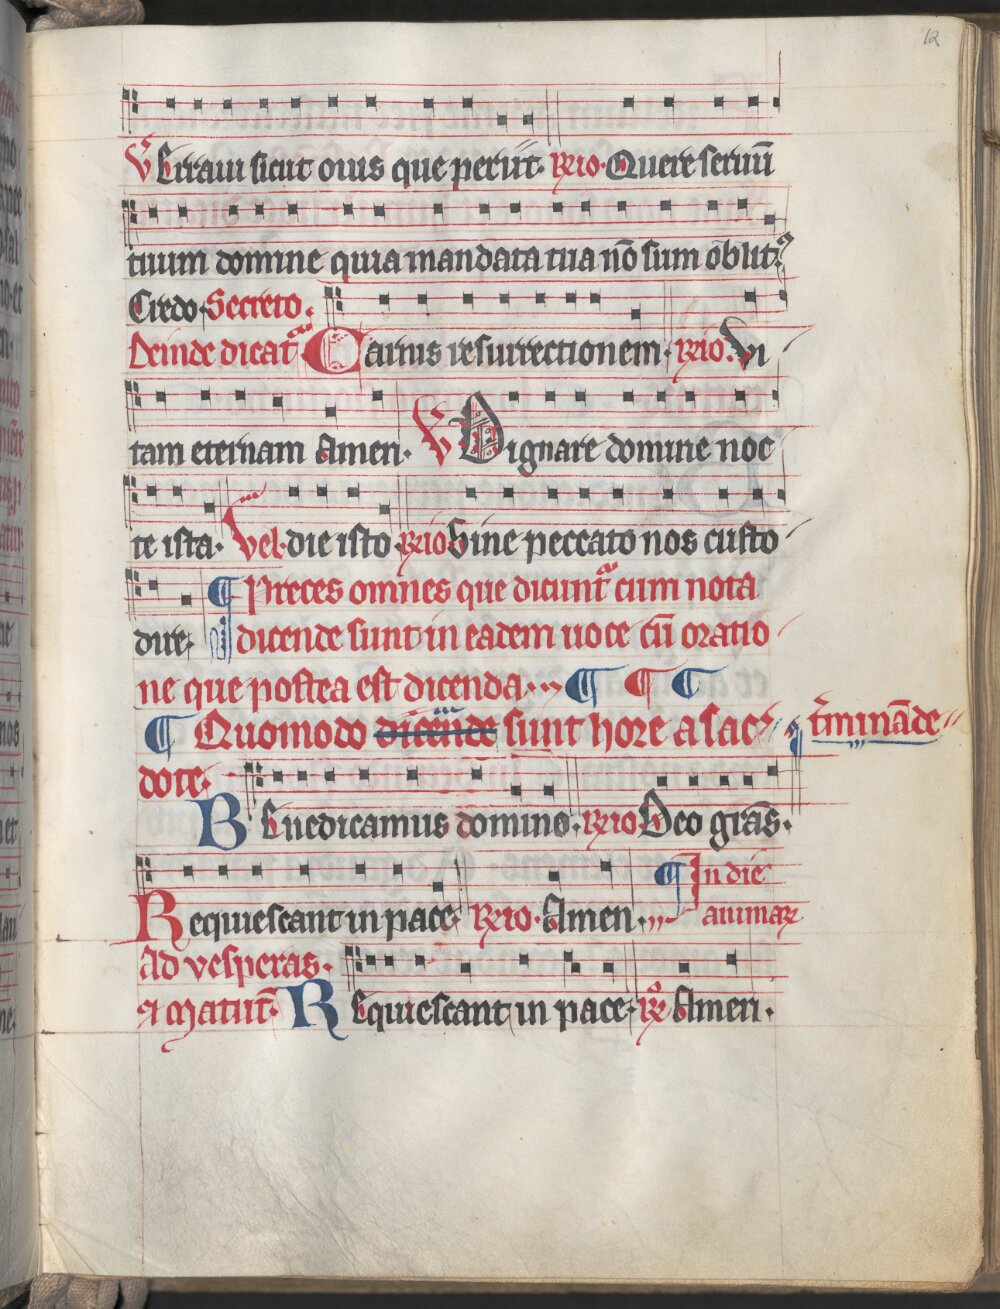 12
V Erraui sicut ouis que periit. Rrio. Quere seruū
tuum domine quia mandata tua nō sum oblit9
Credo. Secreto.
Deinde dicat᷑ Carnis resurrectionem. Rrio. Vi
tam eternam Amen. V Dignare domine noc
te ista. Vel. die isto. Rrio. Sine peccato nos custo
¶ Preces omnes que dicunt᷑ cum nota
dire. dicende sunt in eadem uoce cū oratio
ne que postea est dicenda. ¶ ¶ ¶
¶ Quomodo dicende sunt hore a sacer t̄mināde
dote.
Benedicamus domino. Rrio. Deo grās.
¶ In die
Requiescant in pace. Rrio. Amen. animaꝝ
Ad vesperas.
⁊ matut̄. Requiescant in pace. R̄. Amen.